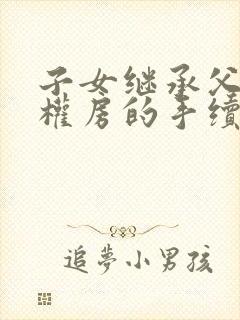 子女继承父
權房的手續
追夢小男孩